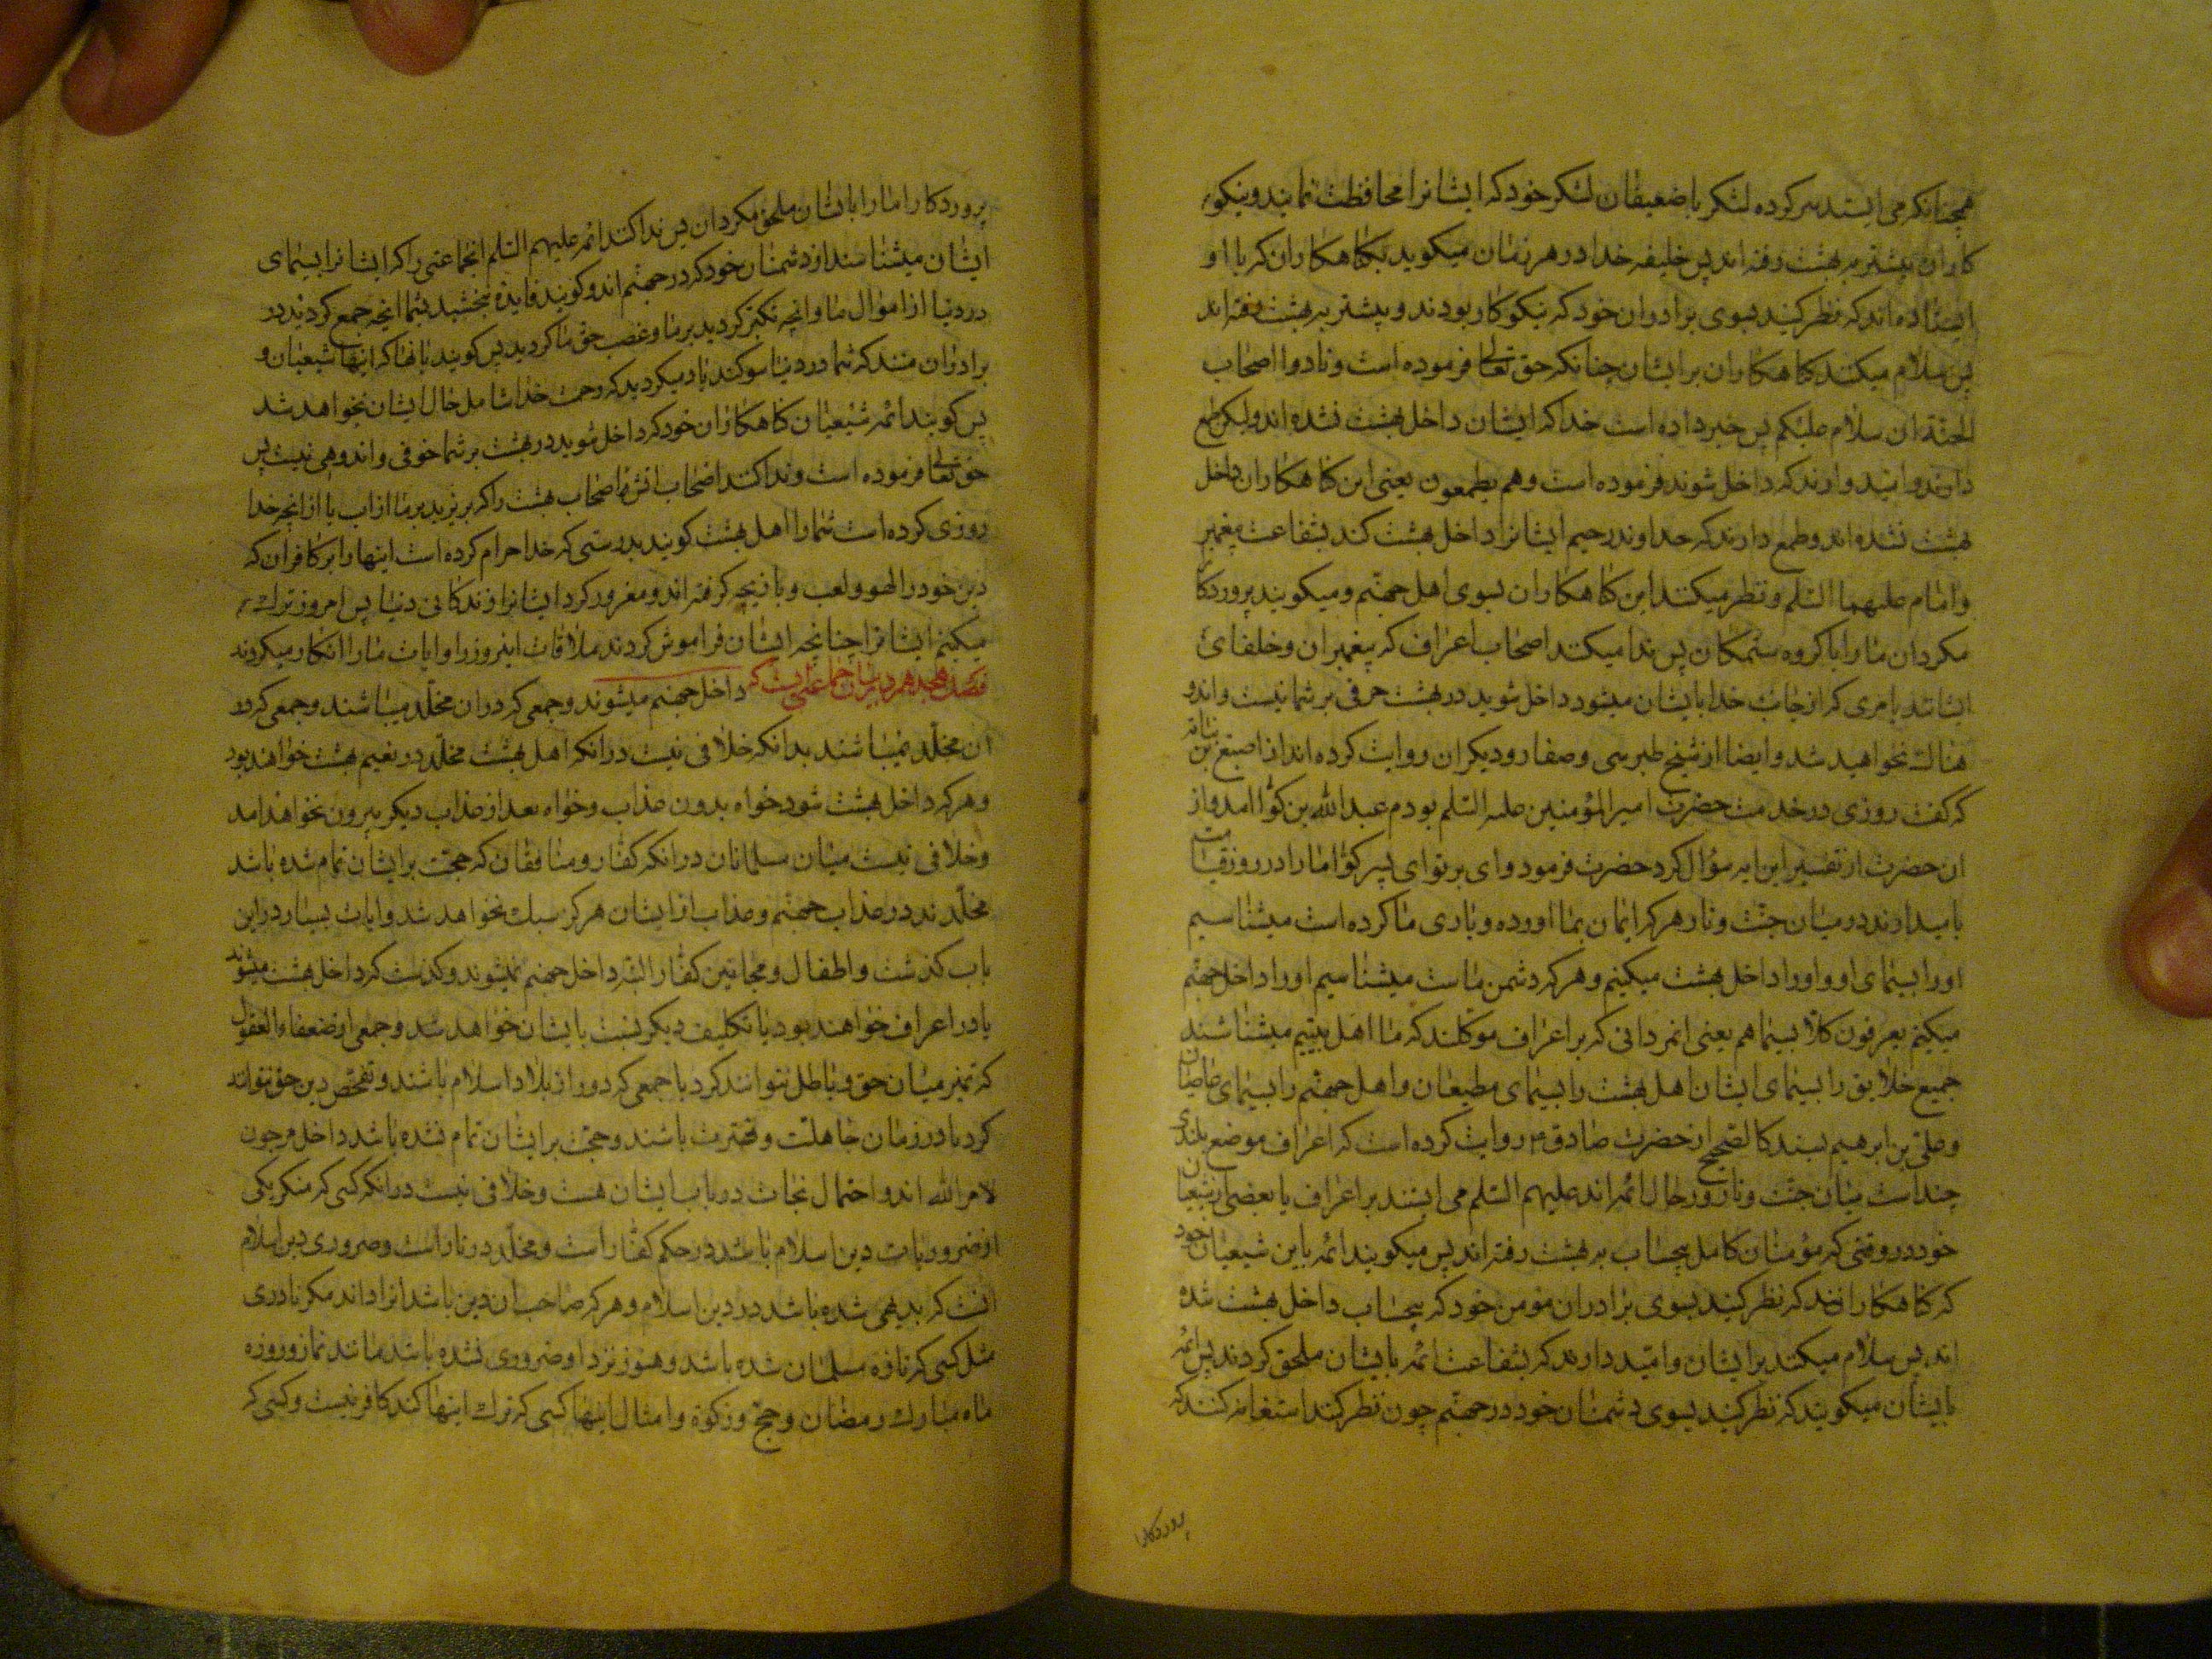 همچنانکه می ایستد سرکرده لشکر با ضعیفان لشکر خود که ایشانرا محافظت نمایند و نیکو
کاران بیشتر به بهشت رفته اند پس خلیفه خدا در هر زمان میکوید بکناهکاران که با او
ایستاده اند که نظر کنید بسوی برادران خود که نیکوکار بودند و پیشتر به بهشت رفته اند
پس سلام میکنند کناهکاران بر ایشان چنانکه حق تعالی فرموده است و نادوا اصحاب
الجنة ان سلام علیکم پس خبر داده است خدا که ایشان داخل بهشت نشده اند ولیکن طمع
دارند و امید دارند که داخل شوند فرموده است و هم یطمعون یعنی این کناهکاران داخل
بهشت نشده اند و طمع دارند که خداوند رحیم ایشانرا داخل بهشت کند بشفاعت پیغمبر
و امام علیهما السلم و نظر میکنند این کناهکاران بسوی اهل جهنم و میکویند پروردکارا
مکردان ما را با کروه ستمکان پس ندا میکنند اصحاب اعراف که پیغمبران و خلفای
ایشانند بامری که از جانب خدا بایشان میشود داخل شوید در بهشت خوفی بر شما نیست و اندو
هناک نخواهید شد و ایضا از شیخ طبرسی و صفار و دیکران روایت کرده اند از اصبغ بن نباته
که کفت روزی در خدمت حضرت امیر المؤمنین علیه السلم بودم عبد الله بن کوّا امد و از
ان حضرت از تفسیر این ایه سؤال کرد حضرت فرمود وای بر تو ای پسر کوّا ما را در روز قیامت
بامیدارند در میان جنّت و نار هر که ایمان بما اورده و یاری ما کرده است میشناسیم
او را بسیمای او و او را داخل بهشت میکنیم و هر که دشمن ماست میشناسیم او را داخل جهنم
میکنیم یعرفون کلّا بسیماهم یعنی انمردانی که بر اعراف موکلند که ما اهل بیتیم میشناسند
جمیع خلایق را بسیمای ایشان اهل بهشت را بسیمای مطیعان و اهل جهنم را بسیمای عاصیان
و علی بن ابرهیم بسند کالصّحیح از حضرت صادق ع روایت کرده است که اعراف موضع بلندی
چند است میان جنّت و نار و رجال ائمه اند علیهم السّلم می ایستند بر اعراف با بعضی از شیعیان
خود در وقتی که مؤمنان کامل بیحساب به بهشت رفته اند پس میکویند ائمه باین شیعیان خود
که کناهکارانند که نظر کنید بسوی برادران مؤمن خود که بیحساب داخل بهشت شده
اند پس سلام میکنند بر ایشان و امّید دارند که بشفاعت ائمه بایشان ملحق کردند پس ائمه
بایشان میکویند که نظر کنید بسوی دشمنان خود در جهنّم چون نظر کنند استغاثه کنند که
پروردکارا
پروردکارا ما را با ایشان ملحق مکردان پس ندا کنند ائمه علیهم السّلم انجماعتی را که ایشانرا بسیمای
ایشان میشناسند از دشمنان خود که در جهنّم اند و کویند فایده نبخشید شما انچه جمع کردید در
در دنیا از اموال ما و انچه تکبّر کردید بر ما و غصب حق ما کردید پس کویند بانها که اینها شیعیان و
برادران منند که شما در دنیا سوکند یاد میکردید که رحمت خدا شامل حال ایشان نخواهد شد
پس کویند ائمه شیعیان کناهکاران خود که داخل شوید در بهشت بر شما خوفی و اندوهی نیست پس
حق تعالی فرموده است و ندا کنند اصحاب اتش اصحاب بهشت را که بریزید بر ما از اب یا از انچه خدا
روزی کرده است شما را اهل بهشت کویند بدرستی که خدا حرام کرده است اینها را بر کافران که
دین خود را لهو و لعب و بازیچه کرفته اند و مغرور کرد ایشانرا زندکانی دنیا پس امروز ترک
میکنیم ایشانرا چنانچه ایشان فراموش کردند ملاقات اینروز را و ایات ما را انکار میکردند
فصل هجدهم در بیان جماعتی است که داخل جهنم میشوند و جمعی که در ان مخلّد میباشند و جمعی که در
ان مخلّد نمیباشند بدانکه خلافی نیست در انکه اهل بهشت مخلّد در نعیم بهشت خواهند بود
و هر که داخل بهشت شود خواه بدون عذاب و خواه بعد از عذاب دیکر بیرون نخواهد امد
و خلافی نیست میان مسلمانان در انکه کفّار و منافقان که حجّت بر ایشان تمام شده باشد
مخلّدند در عذاب جهنّم و عذاب از ایشان هرکز سبک نخواهد شد و ایات بسیار در این
باب کذشت و اطفال و مجانین کفّار البتّه داخل جهنم نمیشوند و کذشت که داخل بهشت میشوند
یا در اعراف خواهند بود یا تکلیف دیکر نسبت بایشان خواهد شد و جمعی از ضعفاء العقول
که تمیز میان حق و باطل نتوانند کرد یا جمعی که دور از بلاد اسلام باشند و تفحّص دین حق نتوانند
کرد یا در زمان جاهلیّت و فترت باشند و حجّت بر ایشان تمام نشده باشد داخل مرجون
لامر الله اند و احتمال نجات در باب ایشان هست و خلافی نیست در انکه کسی که منکر یکی
از ضروریات دین اسلام باشد در حکم کفّار است و مخلّد در نار است و ضروری دین اسلام
انست که بدیهی شده باشد در دین اسلام و هر که صاحب ان دین باشد انرا داند مکر نادری
مثل کسی که تازه مسلمان شده باشد و هنوز نزد او ضروری نشده باشد مانند نماز و روزه
ماه مبارک رمضان و حجّ و زکوة و امثال اینها کسی که ترک اینها کند کافر نیست و کسی که